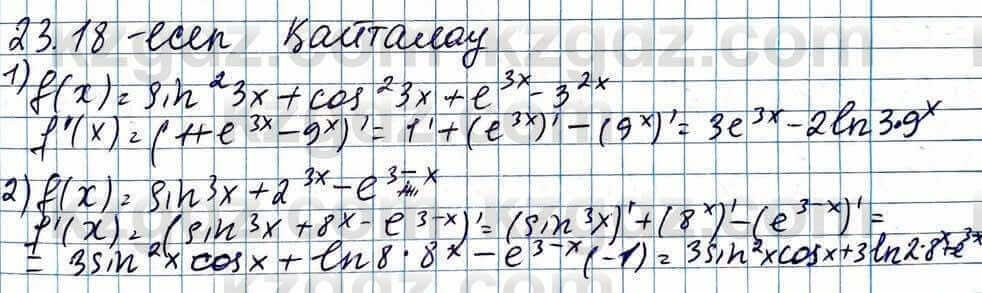 23.18 -есеп Қайталау
1) f(x) = sin²3x + cos²3x + e^3x - 3^2x
f'(x) = (1+e^3x - 9^x)' = 1' + (e^3x)' - (9^x)' = 3e^3x - 2ln3·9^x
2) f(x) = sin³x + 2^3x - e^3-x
f'(x) = (sin³x + 8^x - e^3-x)' = (sin³x)' + (8^x)' - (e^3-x)' =
= 3sin²x cosx + ln8·8^x - e^3-x (-1) = 3sin²x cosx + 3ln2·8^x + e^3-x